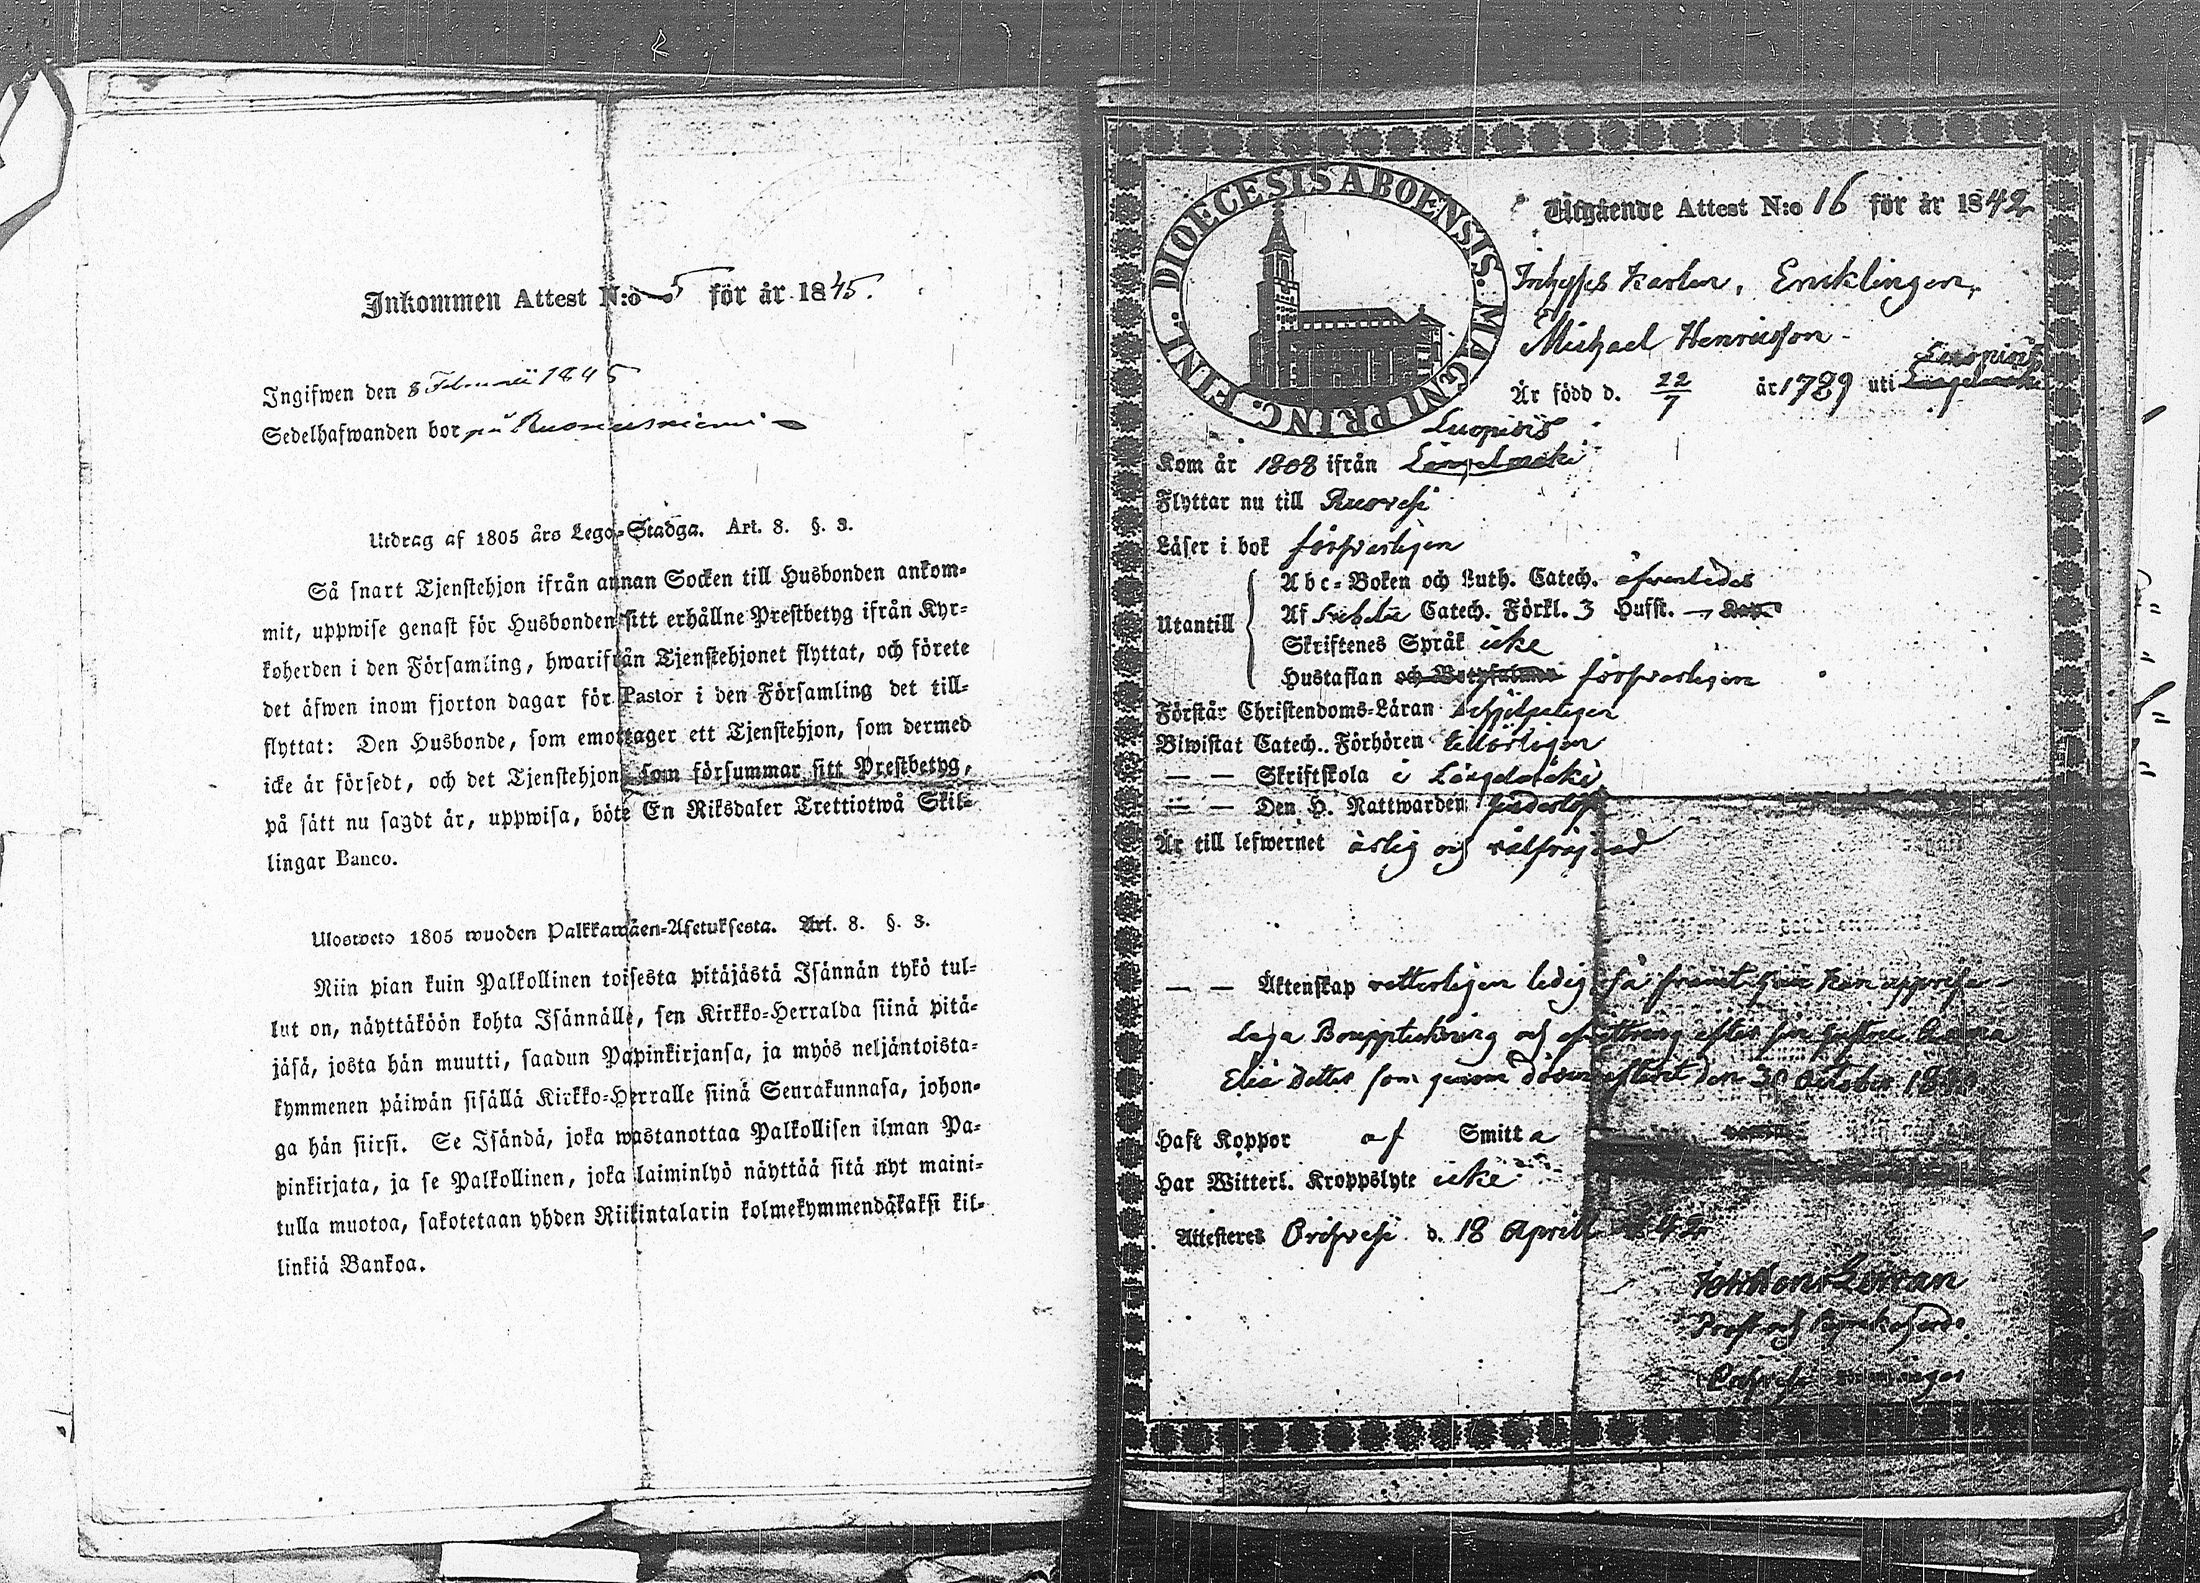 Inkommen Attest N:o 5 för år 1845.
Ingifwen den 8 Februarii 1845
Sedelhafwanden bor på
Utdrag af 1805 års Lego-Stadga. Art. 8. §. 3.
Så snart Tjenstehjon ifrån annan Socken till Husbonden ankom-
mit, uppwise genast för Husbonden sitt erhållne Prestbetyg ifrån Kyr-
koherden i den Församling, hwarifrån Tjenstehjonet flyttat, och förete
det äfwen inom fjorton dagar för Pastor i den Församling det till-
flyttat: Den Husbonde, som emottager ett Tjenstehjon, som dermed
icke är försedt, och det Tjenstehjon, som försummar sitt Prestbetyg,
på sätt nu sagdt är, uppwisa, böte En Riksdaler Trettiotwå Skil-
lingar Banco.
Ulosweto 1805 wuoden Palkkawäen-Asetuksesta. Art. 8. §. 3.
Niin pian kuin Palkollinen toisesta pitäjästä Isännän tykö tul-
lut on, näyttäköön kohta Isännälle, sen Kirkko-Herralda siinä pitä-
jäsä, josta hän muutti, saadun Papinkirjansa, ja myös neljäntoista-
kymmenen päiwän sisällä Kirkko-Herralle siinä Seurakunnasa, johon-
ga hän siirsi. Se Isändä, joka wastanottaa Palkollisen ilman Pa-
pinkirjata, ja se Palkollinen, joka laiminlyö näyttää sitä nyt maini-
tulla muotoa, sakotetaan yhden Riikintalarin kolmekymmendäkaksi kil-
linkiä Bankoa.
DIOECESIS ABOENSIS. MAGNI PRINC. FINL.
Utgående Attest N:o 16 för år 1842
Inhyses Karlen, Enklingen,
Michael Henricsson
Luopiois
Är född d. 22/7 år 1789 uti Längelmäki
Luopiois
Kom år 1808 ifrån Längelmäki
Flyttar nu till Ruovesi
Läser i bok försvarligen
Utantill
Abc-Boken och Luth. Catech. äfvenledes
Af Catech. Förkl. 3 Hufst. — Kap.
Skriftenes Språk icke
Hustaflan och Botpsalmen försvarligen
Förstår Christendoms-Läran hjelpeligen
Biwistat Catech. Förhören
— — Skriftskola i Längelmäki
— — Den H. Nattwarden
Är till lefwernet ärlig och välfräjdad
— — Äktenskap ledig så framt han kan uppvisa
Laga Bouppteckning och efter sin hustru
Elis Dotter som genom döden den October
Haft Koppor af Smitta
Har Witterl. Kroppslyte icke
Attesteres Orihvesi d. 18 April 1842
Prost och Kyrkoherde